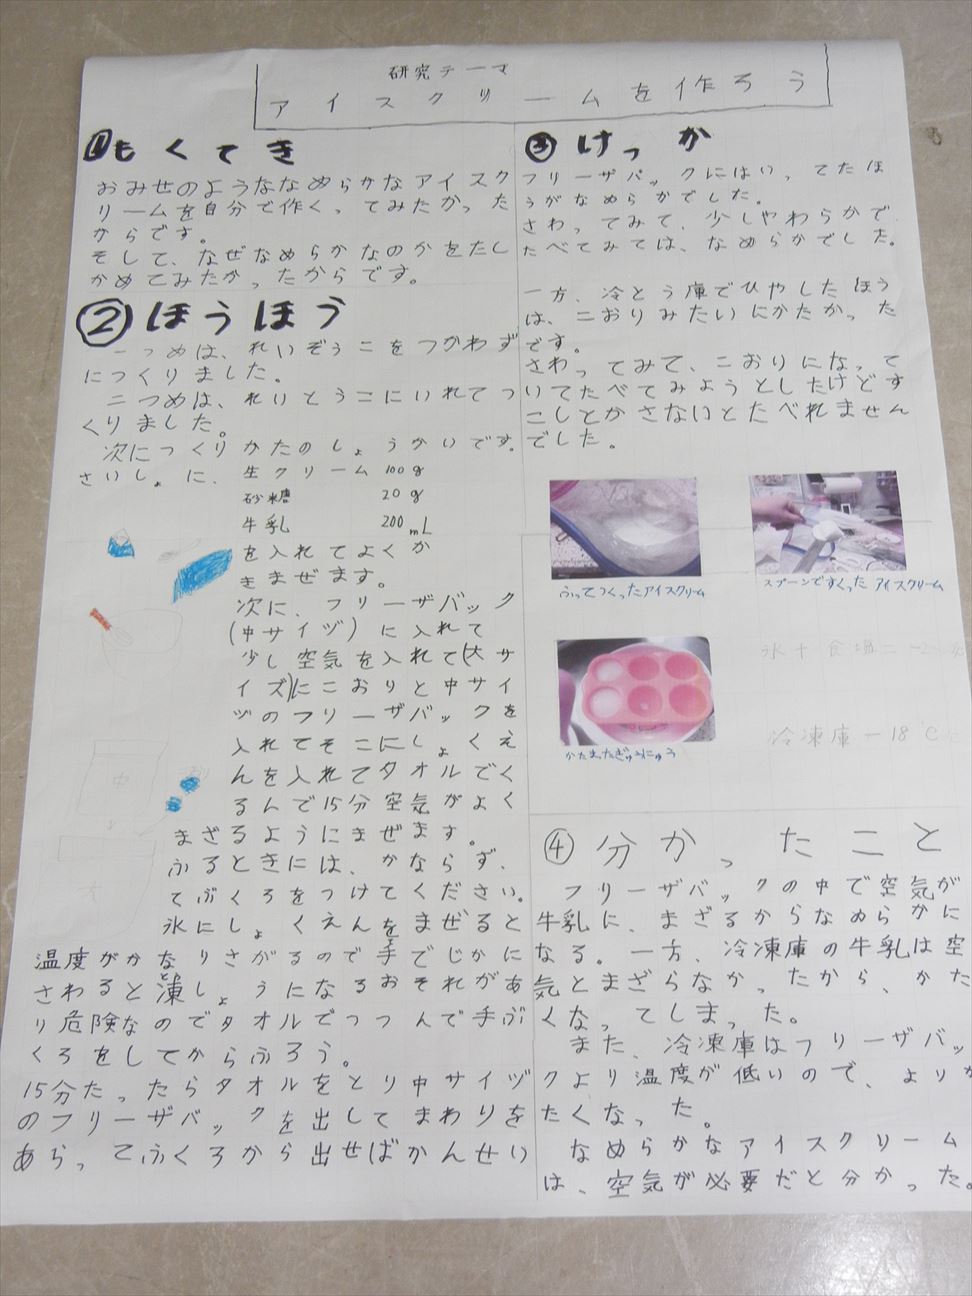 研究テーマ
アイスクリームを作ろう
①もくてき
おみせのようななめらかなアイスク
リームを自分で作くってみたかった
からです。
そして、なぜなめらかなのかをたし
かめてみたかったからです。
②ほうほう
一つめは、れいぞうこをつかわず
につくりました。
二つめは、れいとうこにいれてつ
くりました。
次につくりかたのしょうかいです。
さいしょに、
生クリーム 100g
砂糖 20g
牛乳 200mL
を入れてよくか
きまぜます。
次に、フリーザバック
(中サイヅ)に入れて
少し空気を入れて(大サ
イズ)にこおりと中サイ
ヅのフリーザバックを
入れてそこにしょくえ
んを入れてタオルでく
るんで15分空気がよく
まざるようにまぜます。
ふるときには、かならず、
てぶくろをつけてください。
氷にしょくえんをまぜると
温度がかなりさがるので手でじかに
さわると凍しょうになるおそれがあ
り危険なのでタオルでつつんで手ぶ
くろをしてからふろう。
15分たったらタオルをとり中サイヅ
のフリーザバックを出してまわりを
あらってふくろから出せばかんせい
中
大
③けっか
フリーザパックにはいってたほ
うがなめらかでした。
さわってみて、少しやわらかで
たべてみては、なめらかでした。
一方、冷とう庫でひやしたほう
は、こおりみたいにかたかった
です。
さわってみて、こおりになって
いてたべてみようとしたけどす
こしとかさないとたべれません
でした。
ふってつくったアイスクリーム
スプーンですくった アイスクリーム
かたまったぎゅうにゅう
氷+食塩=-2
冷凍庫-18℃
④分かったこと
フリーザバックの中で空気が
牛乳に、まざるからなめらかに
なる。一方、冷凍庫の牛乳は空
気とまざらなかったから、かた
くなってしまった。
また、冷凍庫はフリーザバッ
クより温度が低いので、よりか
たくなった。
なめらかなアイスクリーム
は、空気が必要だと分かった。